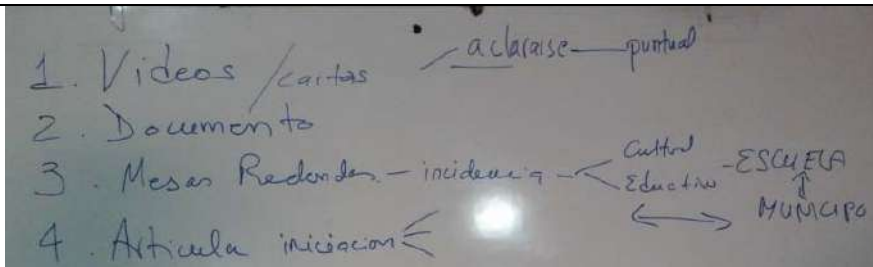 1. Videos / cartas / aclararse — puntual
2. Documento
3. Mesas Redondas - incidencia - < Cultural
Educativo - ESCUELA
MUNICIPO
4. Articula iniciacion